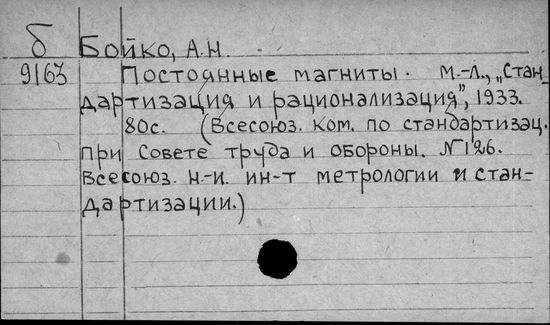 б Бойко, А.Н.
9163 Постоянные магниты. М.-Л., „Стан-
дартизация и рационализация", 1933.
80с. (Всесоюз. ком. по стандартизац.
при Совете труда и обороны. №126.
Всесоюз. н-и. ин-т метрологии и стан-
дартизации.)